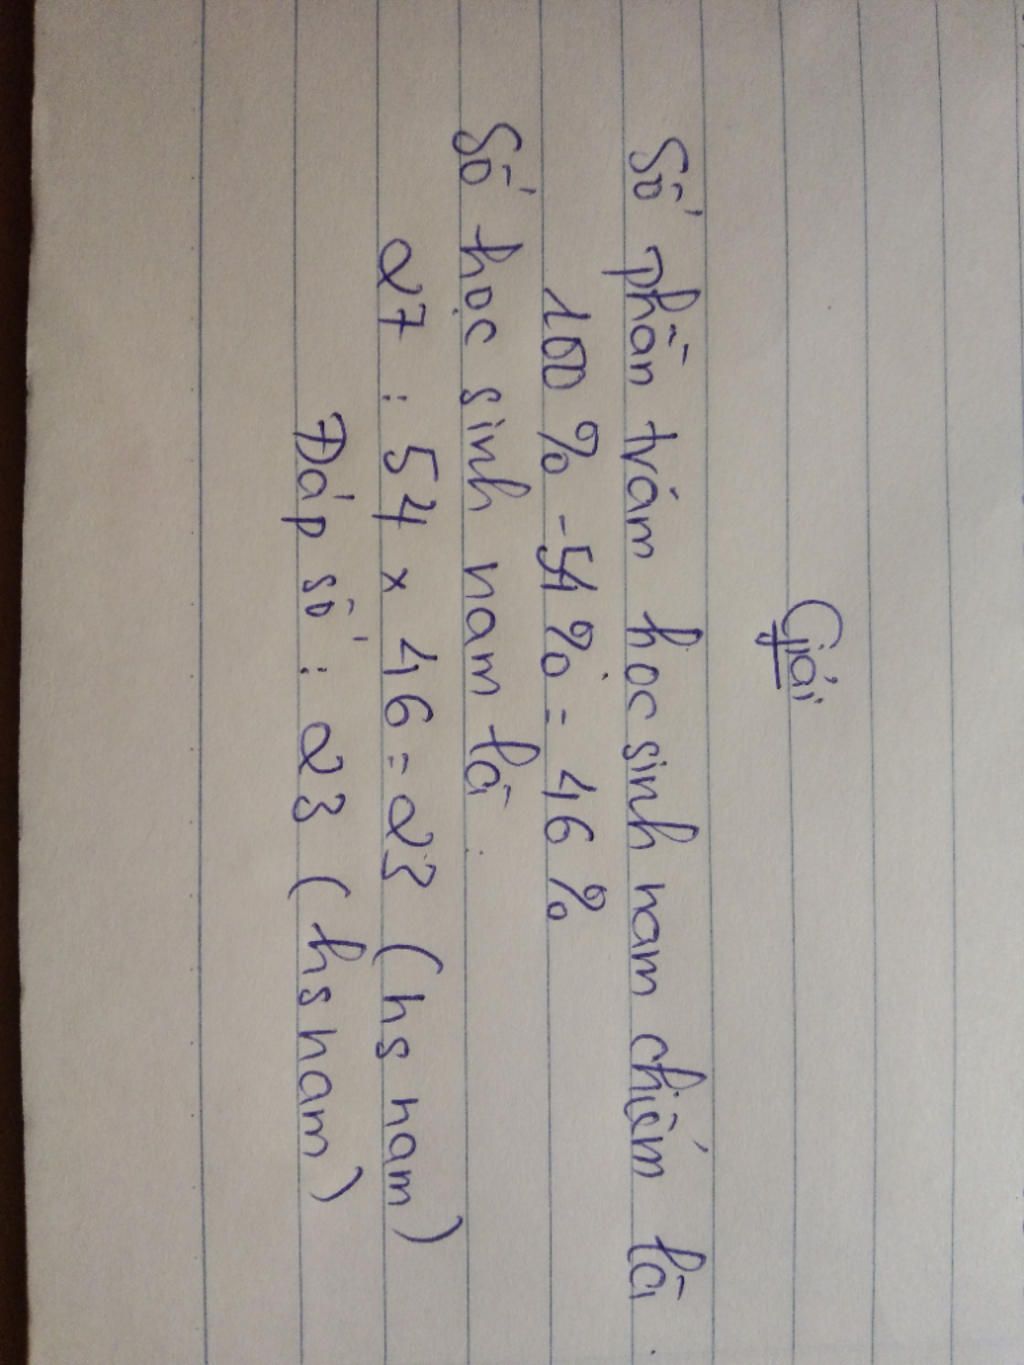 Giải
Số phần trăm học sinh nam chiếm là
100% - 54% = 46%
Số học sinh nam là
27 : 54 x 46 = 23 (hs nam)
Đáp số : 23 (hs nam)